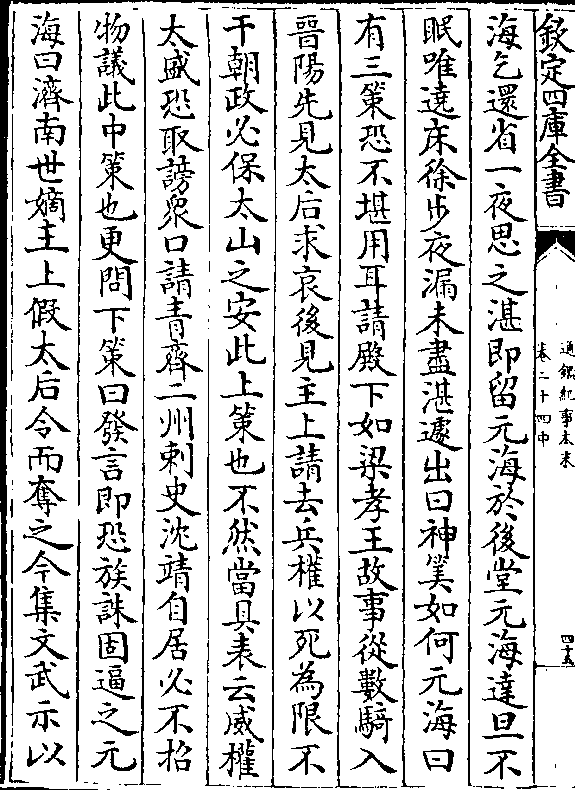 欽定四庫全書
通鑑紀事本末
卷二十四中
四十五
海乞還省一夜思之湛即留元海於後堂元海達旦不
眠唯遶床徐步夜漏未盡湛遽出曰神筭如何元海曰
有三策恐不堪用耳請殿下如梁孝王故事從數騎入
晉陽先見太后求哀後見主上請去兵權以死為限不
干朝政必保太山之安此上策也不然當具表云威權
太盛恐取謗衆口請青齊二州刺史沈靖自居必不招
物議此中策也更問下策曰發言即恐族誅固逼之元
海曰濟南世嫡主上假太后令而奪之今集文武示以